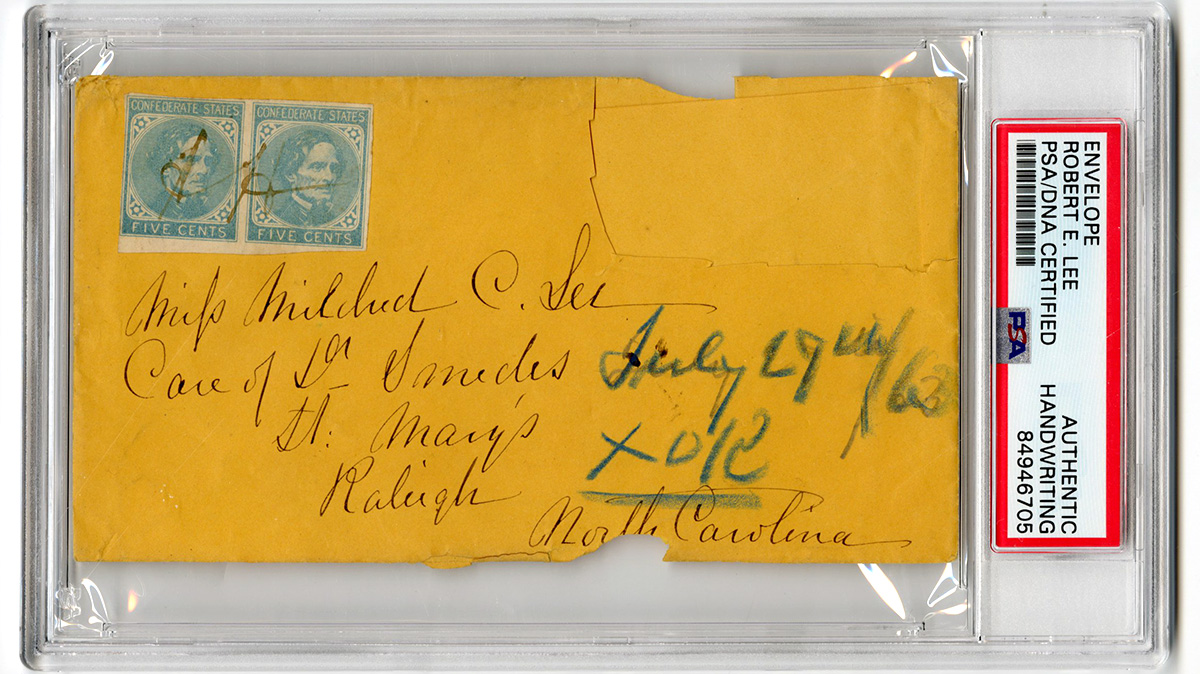 CONFEDERATE STATES
FIVE CENTS
CONFEDERATE STATES
FIVE CENTS
Miss Mildred C. Lee
Care of Dr Smedes
St: Mary's
Raleigh
North Carolina
July 27th/63
ENVELOPE
ROBERT E. LEE
PSA/DNA CERTIFIED
PSA
AUTHENTIC
HANDWRITING
84946705